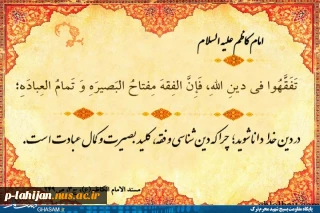 امام کاظم علیه السلام
تَفَقَّهُوا فی دینِ اللهِ، فَاِنَّ الفِقهَ مِفتاحُ البَصیرَهِ وَ تَمامُ العِبادَهِ؛
در دین خدا دانا شوید؛ چرا که دین شناسی و فقه، کلید بصیرت و کمال عبادت است.
مسند الامام
p-lahijan.nus.ac.ir
GHASAM.ir
پایگاه مقاومت بسیج شهید